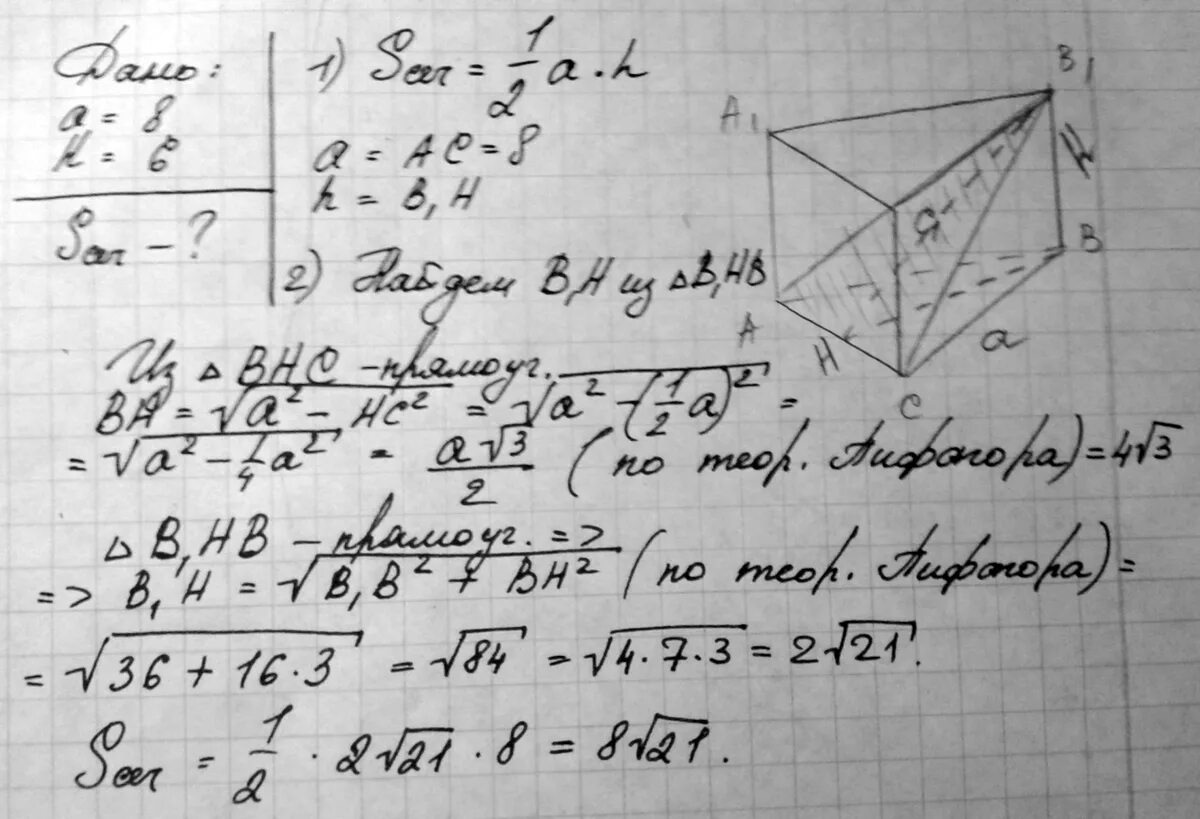 Дано:
a = 8
h = 6
Sсеч - ?
1) Sсеч = 1/2 a · h
a = AC = 8
h = B₁H
2) Найдем B₁H из △B₁HB
Из △ BHC - прямоуг.
BH = √(a² - HC²) = √(a² - (1/2 a)²) =
= √(a² - 1/4 a²) = a√3/2 (по теор. Пифагора) = 4√3
△ B₁HB - прямоуг. =>
=> B₁H = √(B₁B² + BH²) (по теор. Пифагора) =
= √(36 + 16·3) = √84 = √(4·7·3) = 2√21.
Sсеч = 1/2 · 2√21 · 8 = 8√21.
B₁
A₁
H
B
A
H
a
C